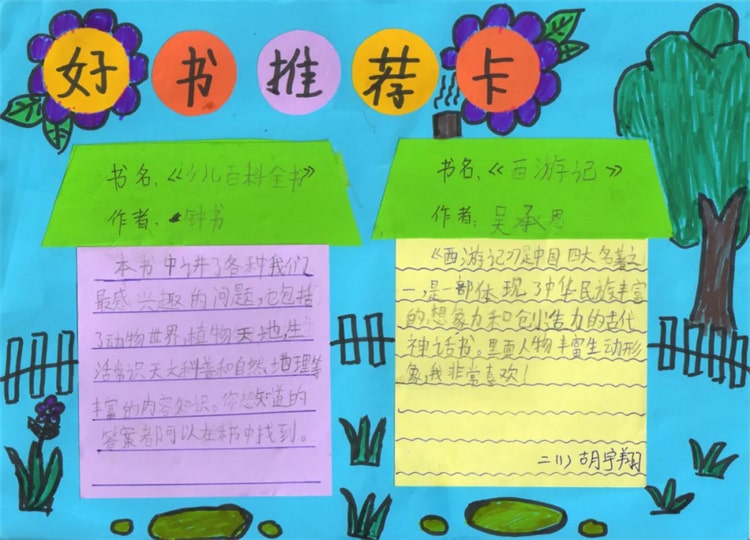 好书推荐卡
书名:《少儿百科全书》
作者:钟书
本书中讲了各种我们
最感兴趣的问题,它包括
了动物世界,植物天地,生
活常识天文科普和自然、地理等
丰富的内容知识。你想知道的
答案都可以在书中找到。
书名:《西游记》
作者:吴承恩
《西游记》是中国四大名著之
一,是一部体现了中华民族丰富
的想象力和创造力的古代
神话书。里面人物丰富生动形
象,我非常喜欢!
二(1)胡宇翔